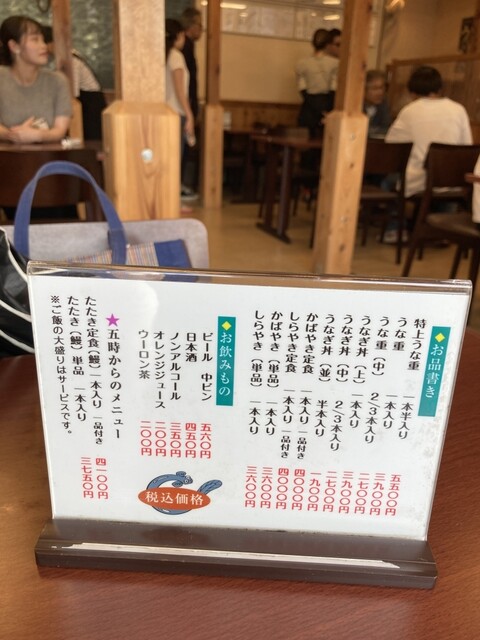 ◆お品書き
特上うな重 一本半入り 五五〇〇円
うな重 一本入り 三九〇〇円
うな重（中） 2/3本入り 二七〇〇円
うなぎ丼（上） 一本入り 三九〇〇円
うなぎ丼（中） 2/3本入り 二七〇〇円
うなぎ丼（並） 半本入り 一九〇〇円
かばやき定食 一本入り 一品付き 四〇〇〇円
しらやき定食 一本入り 一品付き 四〇〇〇円
かばやき（単品） 一本入り 三六〇〇円
しらやき（単品） 一本入り 三六〇〇円
◆お飲みもの
ビール 中ビン 五六〇円
日本酒 四五〇円
ノンアルコール 三五〇円
オレンジジュース 二〇〇円
ウーロン茶 二〇〇円
税込価格
★五時からのメニュー
たたき定食（鰻）一本入り 一品付き 四一〇〇円
たたき（鰻）単品 一本入り 三七五〇円
※ご飯の大盛りはサービスです。